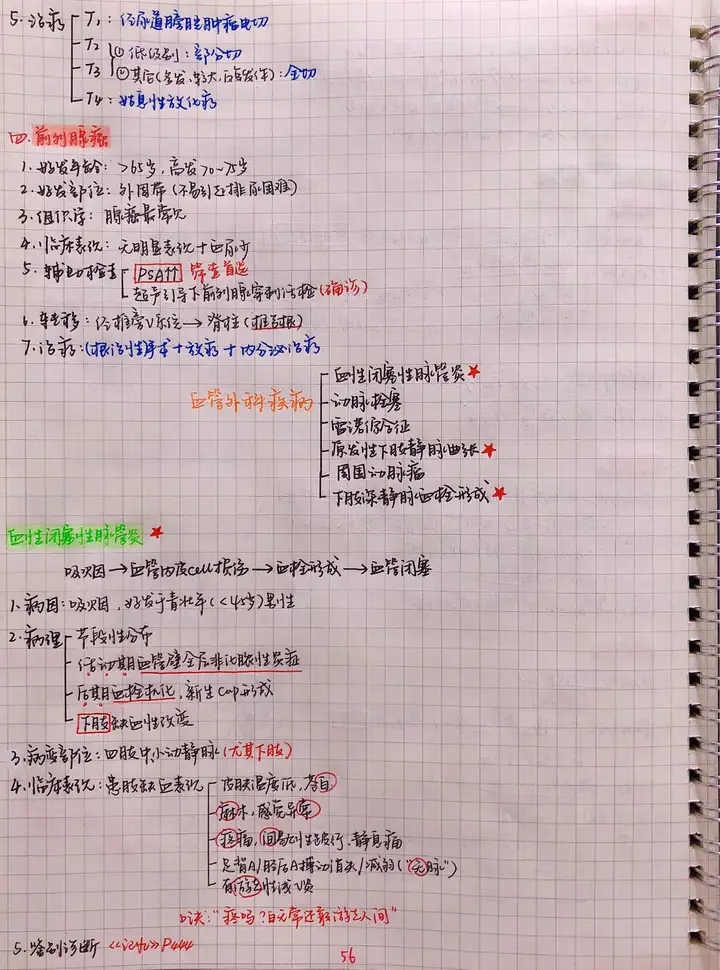 5. 治疗 T₁：经尿道膀胱肿瘤电切
T₂
T₃ ① 低级别：部分切
② 其它(多发、较大、反复发作)：全切
T₄：姑息性放化疗
四. 前列腺癌
1. 好发年龄：>65岁，高发70~75岁
2. 好发部位：外周带 (不易引起排尿困难)
3. 组织学：腺癌最常见
4. 临床表现：无明显表现+血尿少
5. 辅助检查 PSA↑↑ 筛查首选
超声引导下前列腺穿刺活检(确诊)
6. 转移：经椎旁V系统→脊柱(椎弓根)
7. 治疗：(根治性手术+放疗+内分泌治疗
血管外科疾病 血栓闭塞性脉管炎★
动脉栓塞
雷诺综合征
原发性下肢静脉曲张★
周围动脉瘤
下肢深静脉血栓形成★
血栓闭塞性脉管炎 ★
吸烟→血管内皮cell损伤→血栓形成→血管闭塞
1. 病因：吸烟，好发于青壮年(<45岁)男性
2. 病理 节段性分布
活动期血管壁全层非化脓性炎症
后期血栓机化，新生cap形成
下肢缺血性改变
3. 病变部位：四肢中、小动静脉(尤其下肢)
4. 临床表现：患肢缺血表现 皮肤温度低，苍白
麻木，感觉异常
疼痛，间歇性跛行、静息痛
足背A/胫后A搏动消失/减弱("无脉")
游走性浅V炎
口诀："疼吗?白无常还敢游走人间"
5. 鉴别诊断 P444
56